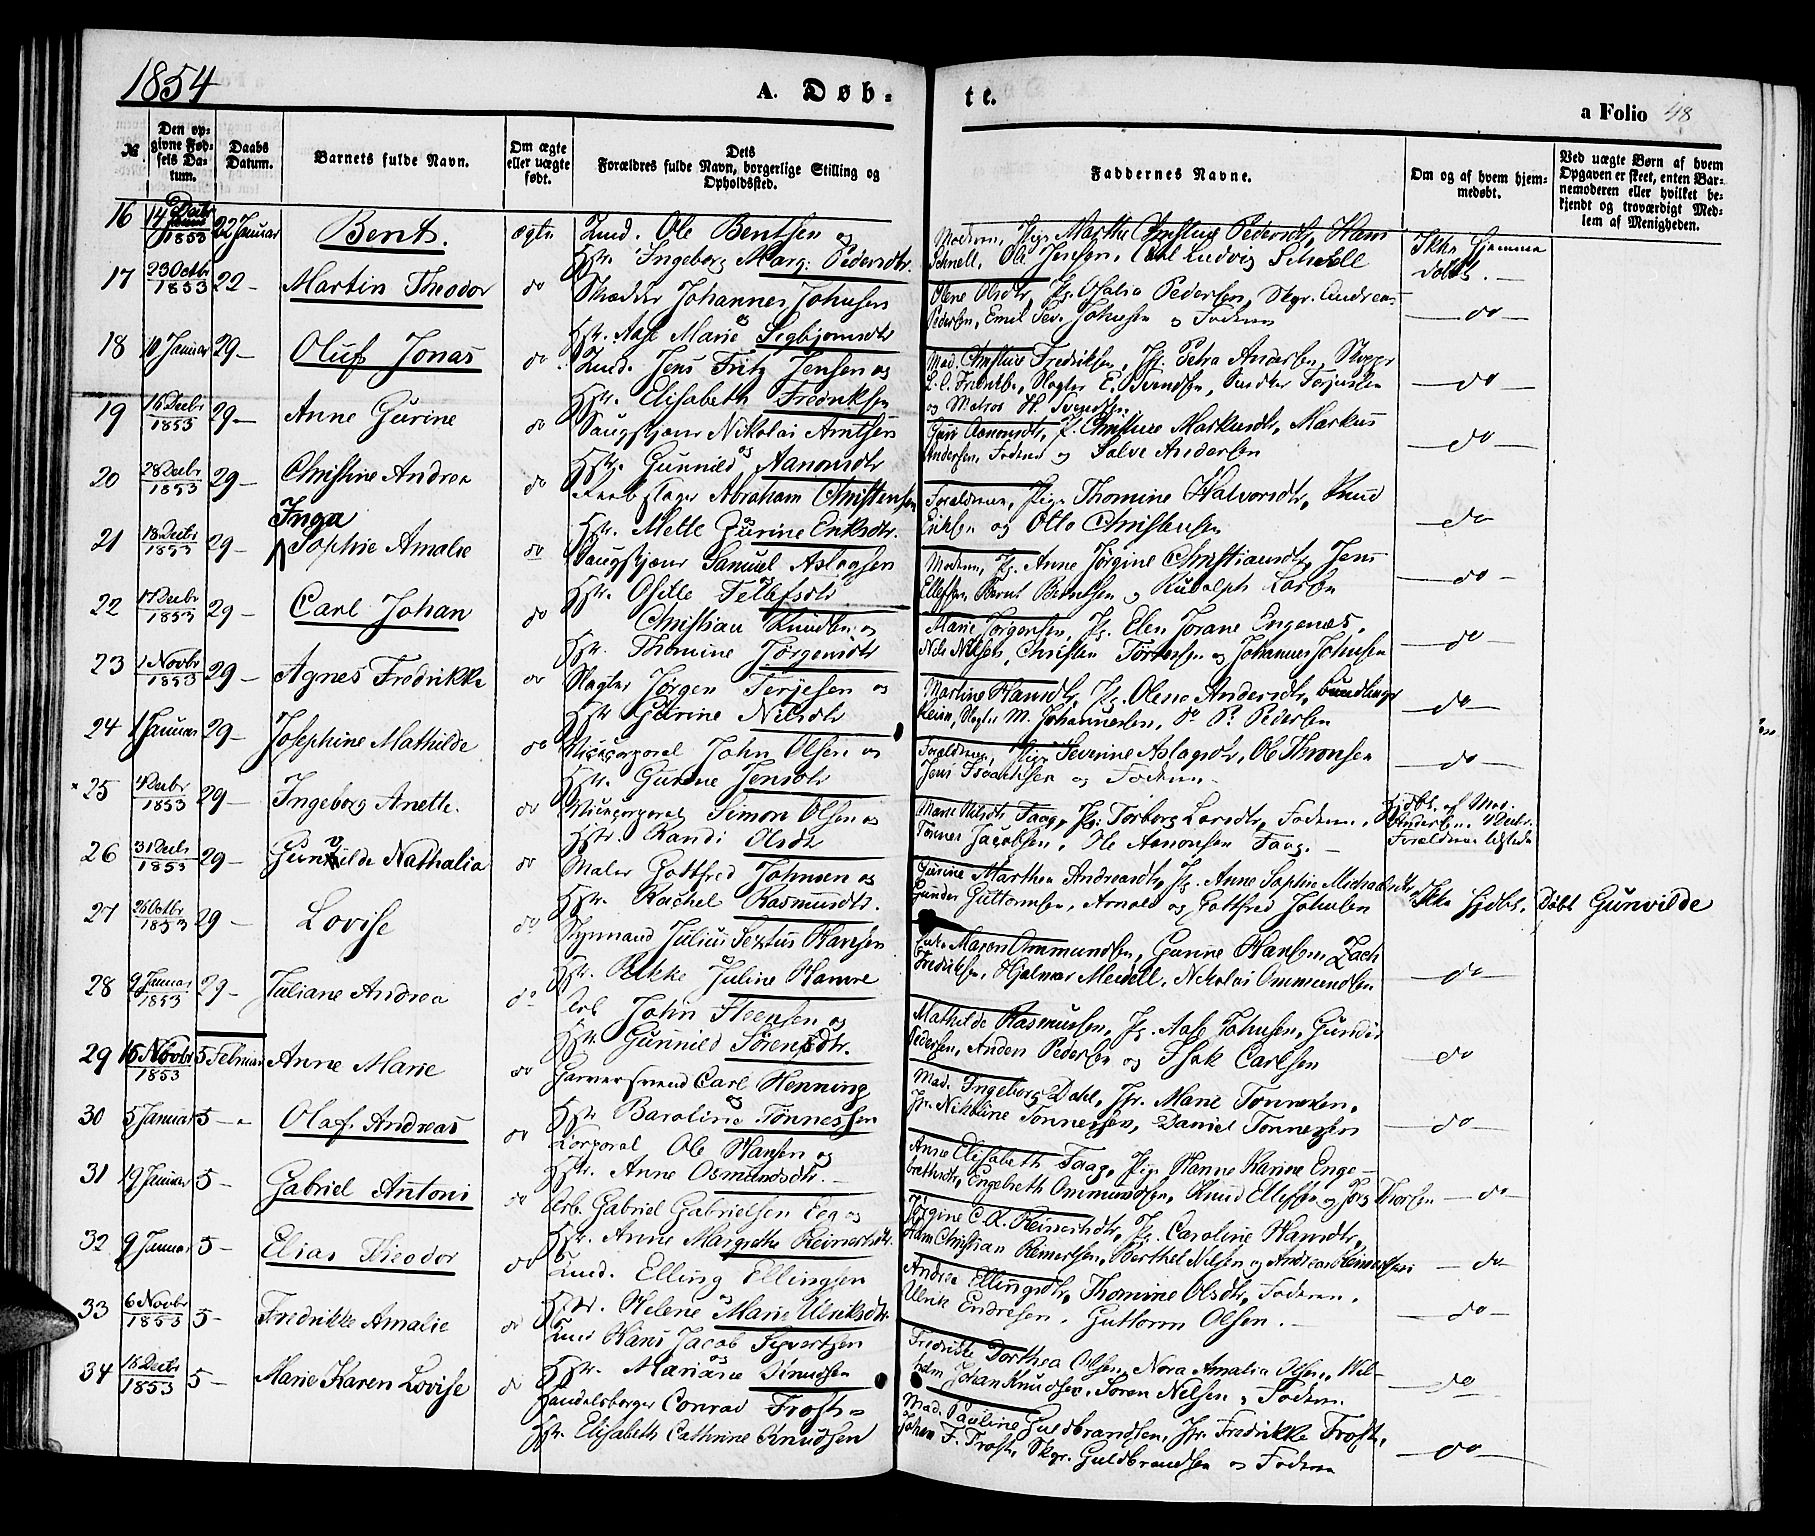 1854
A. Døb-
te.
a Folio 48
№
Den op-
givne Fød-
sels Da-
tum.
Daabs
Datum.
Barnets fulde Navn.
Om ægte
eller uægte
født.
Dets
Forældres fulde Navn, borgerlige Stilling og
Opholdssted.
Faddernes Navne.
Om og af hvem hjem-
medøbt.
Ved uægte Børn af hvem
Opgaven er skeet, enten Bar-
nemoderen eller hvilket be-
kjendt og troværdigt Med-
lem af Menigheden.
16 14 Decbr 1853 22 Januar Bent. ægte Ole Bentsen og
Ingeborg Marg. Pedersdtr.
Moderen, Marthe Christine Pedersdtr, Hans
Schnell, Ole Jensen, Carl Ludvig Schnell
Ikke Hjemme
døbt.
17 23 Octbr 1853 22 - Martin Theodor do Skrædder Johannes Johnsen
og Aase Marie Segbjørnsdtr
Olene Olsdtr, Pedersen, Skpr. Andreas
Pedersen, Emil Johnsen og Faderen
do
18 10 Januar 29 - Oluf Jonas do Jens Fritz Jensen og
Elisabeth Fredriksen
Mad. Christine Fredriksen, Petra Andersen,
Slagter E. Svendsen, Terjesen
og Matros H. Svendsen
do
19 16 Decbr 1853 29 - Anne Gurine do Nikolai Arntsen
og Gunnild Aanonsdtr
Guri Aanonsdtr, P. Christine Markusdtr, Markus
Andersen, Faderen og Salve Andersen
do
20 28 Decbr 1853 29 - Christine Andrea do Abraham Christensen
og Mette Gurine Eriksdtr.
Forældrene, Pige Thomine Halvorsdtr, Knud
Eriksen og Otto Christensen
do
21 18 Decbr 1853 29 - Inga
Sophie Amalie do Samuel Aslagsen
og Osille Tellefsdtr
Moderen, Anne Jørgine Christiansdtr, Jens
Ellefsen Bernt Berntsen og Rudolph Larsen
do
22 17 Decbr 1853 29 - Carl Johan do Christian Knudsen og
Thomine Jørgensdtr
Marie Jørgensen, Elen Jorane Engenæs,
Nils Nilsen, Christen Torkersen og Johannes Johnsen
do
23 1 Novbr 1853 29 - Agnes Fredrikke do Slagter Jørgen Terjesen og
Gurine Nilsdtr
Martine Hansdtr, Olene Andersdtr,
Slagter M. Johannesen, do P. Pedersen
do
24 1 Januar 29 - Josephine Mathilde do Vicecorporal John Olsen og
Gurine Jensdtr
Forældrene, Pige Severine Aslagsdtr, Ole Thronsen
Jens Isaachsen og Faderen.
do
25 4 Decbr 1853 29 - Ingeborg Anette. do Vicecorporal Simon Olsen og
Randi Olsdtr
Marie Nilsdtr Faag, Torborg Larsdtr, Faderen,
Tønnes Jacobsen, Ole Aanonsen Faag.
Hjdbt. af Mad.
Andersen. 4 Decbr.
Forældrene tilstede
26 31 Decbr 1853 29 - Gunvilde Nathalia do Maler Gottfred Johnsen og
Rachel Rasmusdtr.
Gurine Marthea Andreasdtr, Anne Sophie Michaelsdtr
Gunder Guttormsen, Arnold og Gottfred Johnsen
Ikke Hjdbt. Døbt Gunvilde
27 26 Octbr 1853 29 - Lovise do Styrmand Julius Sextus Hansen
og Rikke Juline Hamre
Maren Ommundsen, Gurine Hansen, Zach
Fredriksen, Hjalmar Meidell, Nikolai Ommundsen
do
28 9 Januar 1853 29 - Juliane Andrea do Arb John Steensen og
Gunnild Sørensdtr.
Mathilde Rasmussen, Aase Johnsen, Gunder
Pedersen, Anders Pedersen og Isak Carlsen
do
29 15 Novbr 1853 5 Februar Anne Marie do Garversvend Carl Henning
og Baroline Tønnessen
Mad. Ingeborg Dahl, Jfr. Marie Tønnesen,
Jfr. Nikoline Tønnessen, Daniel Tønnessen
do
30 5 Januar 5 - Olaf Andreas do Corporal Ole Hansen og
Anne Osmundsdtr.
Anne Elisabeth Faag, Pige Hanne Karine Enge-
brethsdtr, Engebreth Ommundsen, Knud Ellefsen og Jørg Thorsen
do
31 19 Januar 5 - Gabriel Antoni do Arb. Gabriel Gabrielsen Eeg og
Anne Margrethe Reinertsdtr.
Jørgine C. R. Reinertsdtr, Caroline Hansdtr,
Hans Christian Reinertsen, Berthel Nilsen og Andreas Reinertsen
do
32 9 Januar 5 - Elias Theodor do Elling Ellingsen
og Helene Marie Ulriksdtr
Andrea Ellingsdtr, Thomine Olsdtr, Faderen,
Ulrik Endresen, Guttorm Olsen.
do
33 6 Novbr 1853 5 - Fredrikke Amalie do Hans Jacob Syvertsen
og Mariane Knudsen
Fredrikke Dorthea Olsen, Nora Amalia Olsen, Wil-
helm Johan Knudsen, Søren Nielsen, Faderen.
do
34 18 Decbr 1853 5 - Marie Karen Lovise do Handelsborger Conrad Frost
Elisabeth Cathrine Knudsen
Mad. Pauline Guldbrandsen, Jfr. Fredrikke Frost,
Johan F. Frost, Skpr. Guldbrandsen og Faderen
do